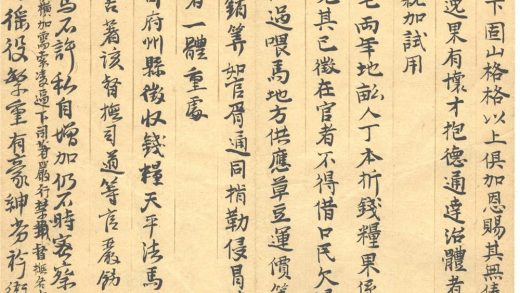 下固山格格以上俱加恩賜其無俸
逸果有懷才抱德通達治體者
就加試用
七兩年地畝人丁本折錢糧果係
免其已徵在官者不得借口民欠
過喂馬地方供應草豆運價等
銷算如官胥通同掯勒侵冒
一體重處
府州縣徵收錢糧天平法馬
著該督撫司道等官嚴飭
馬不許私自增加仍不時密察
橫加需索凌逼下司著嚴行禁飭督撫
徭役繁重有豪紳劣衿衙